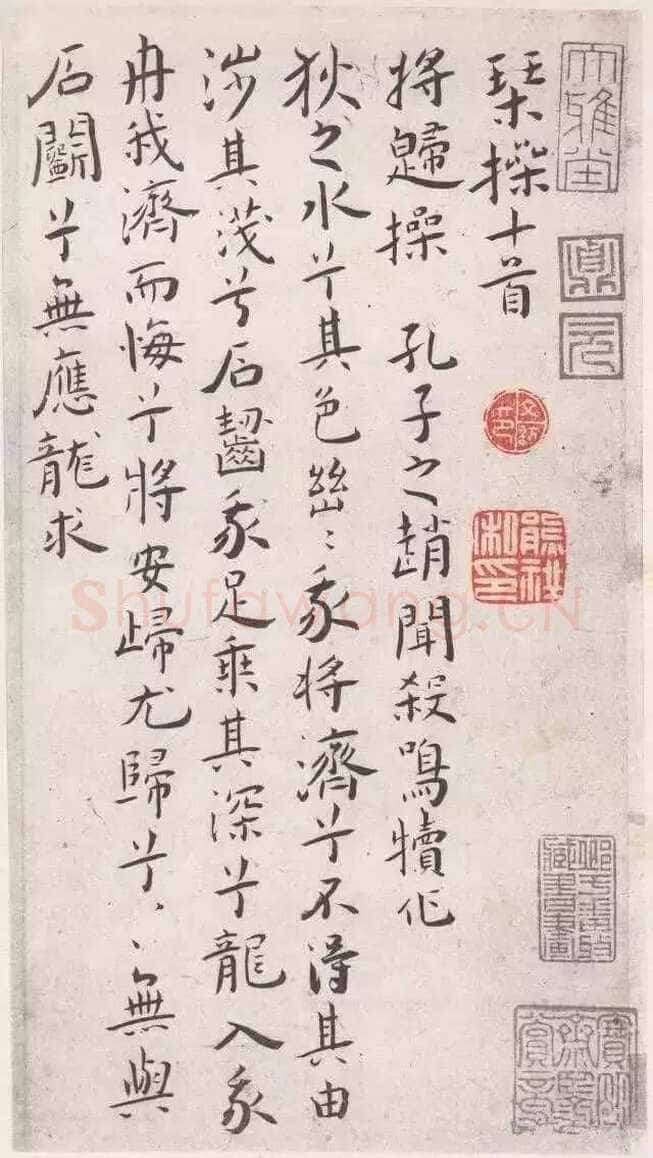 琴操十首
将歸操 孔子之趙聞殺鳴犢作
狄之水兮其色幽〻我将濟兮不得其由
涉其浅兮石齧我足乗其深兮龍入我
舟我濟而悔兮將安歸尤歸兮〻〻無與
石鬭兮無應龍求
大雅堂
Shufawang.CN